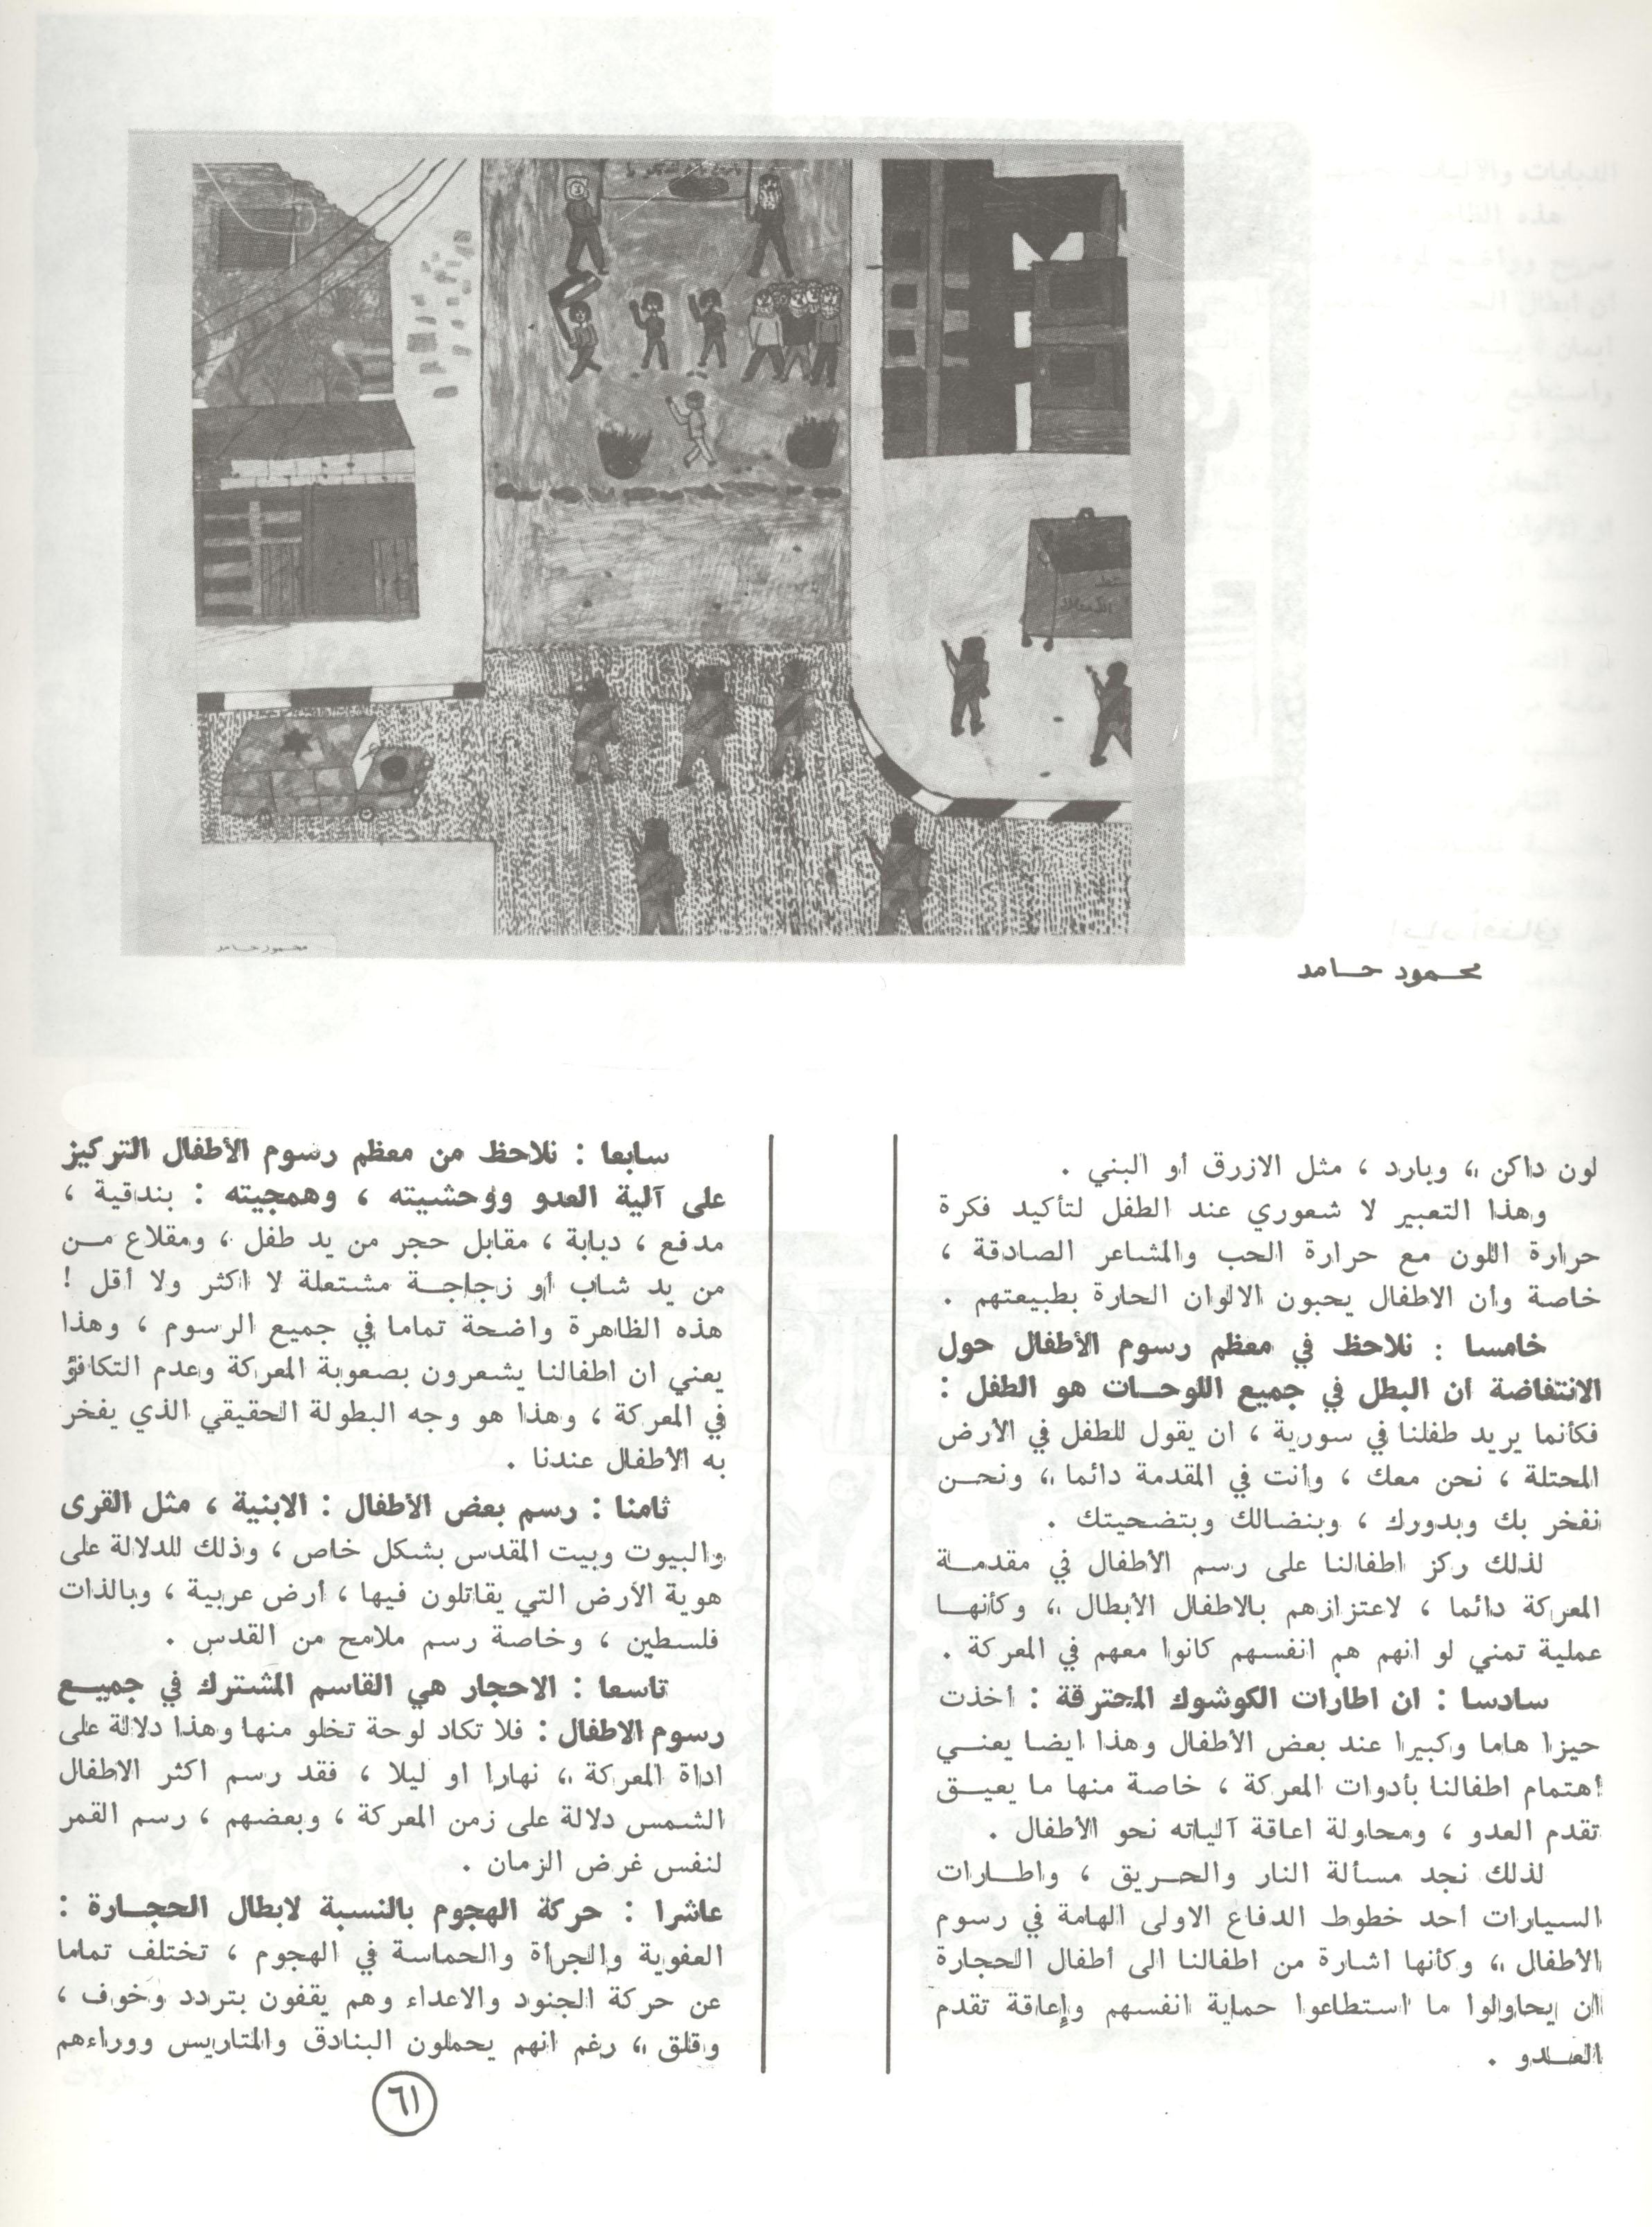 محمود حامد
محمود حامد
لون داكن ، وبارد ، مثل الازرق أو البني .
وهذا التعبير لا شعوري عند الطفل لتأكيد فكرة
حرارة اللون مع حرارة الحب والمشاعر الصادقة ،
خاصة وأن الاطفال يحبون الالوان الحارة بطبيعتهم .
خامسا : نلاحظ في معظم رسوم الأطفال حول
الانتفاضة ان البطل في جميع اللوحات هو الطفل :
فكأنما يريد طفلنا في سورية ، ان يقول للطفل في الأرض
المحتلة ، نحن معك ، وأنت في المقدمة دائما ، ونحن
نفخر بك وبدورك ، وبنضالك وبتضحيتك .
لذلك ركز اطفالنا على رسم الأطفال في مقدمة
المعركة دائما ، لاعتزازهم بالاطفال الأبطال ، وكأنها
عملية تمني لو انهم هم انفسهم كانوا معهم في المعركة .
سادسا : ان اطارات الكوشوك المحترقة : أخذت
حيزا هاما وكبيرا عند بعض الأطفال وهذا ايضا يعني
اهتمام اطفالنا بأدوات المعركة ، خاصة منها ما يعيق
تقدم العدو ، ومحاولة اعاقة آلياته نحو الأطفال .
لذلك نجد مسألة النار والحريق ، واطارات
السيارات أحد خطوط الدفاع الاولى الهامة في رسوم
الأطفال ، وكأنها اشارة من اطفالنا الى أطفال الحجارة
ان يحاولوا ما استطاعوا حماية انفسهم وإعاقة تقدم
العدو .
سابعا : نلاحظ من معظم رسوم الأطفال التركيز
على آلية العدو ووحشيته ، وهمجيته : بندقية ،
مدفع ، دبابة ، مقابل حجر من يد طفل ، ومقلاع من
من يد شاب أو زجاجة مشتعلة لا اكثر ولا أقل !
هذه الظاهرة واضحة تماما في جميع الرسوم ، وهذا
يعني ان اطفالنا يشعرون بصعوبة المعركة وعدم التكافؤ
في المعركة ، وهذا هو وجه البطولة الحقيقي الذي يفخر
به الأطفال عندنا .
ثامنا : رسم بعض الأطفال : الابنية ، مثل القرى
والبيوت وبيت المقدس بشكل خاص ، وذلك للدلالة على
هوية الأرض التي يقاتلون فيها ، أرض عربية ، وبالذات
فلسطين ، وخاصة رسم ملامح من القدس .
تاسعا : الاحجار هي القاسم المشترك في جميع
رسوم الاطفال : فلا تكاد لوحة تخلو منها وهذا دلالة على
اداة المعركة ، نهارا او ليلا ، فقد رسم اكثر الاطفال
الشمس دلالة على زمن المعركة ، وبعضهم ، رسم القمر
لنفس غرض الزمان .
عاشرا : حركة الهجوم بالنسبة لابطال الحجارة :
العفوية والجرأة والحماسة في الهجوم ، تختلف تماما
عن حركة الجنود والاعداء وهم يقفون بتردد وخوف ،
وقلق ، رغم انهم يحملون البنادق والمتاريس ووراءهم
٦١